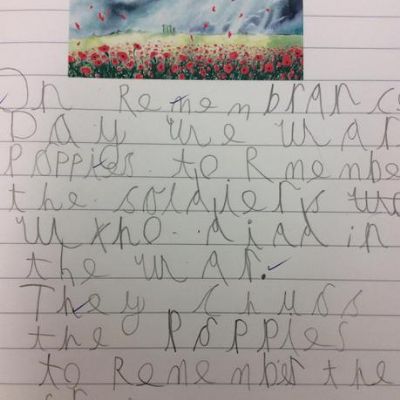 On Remembrance
Day we war
Poppies to Rmember
the soldiers
who diad in
the war.
They chuss
the Poppies
to Remember the